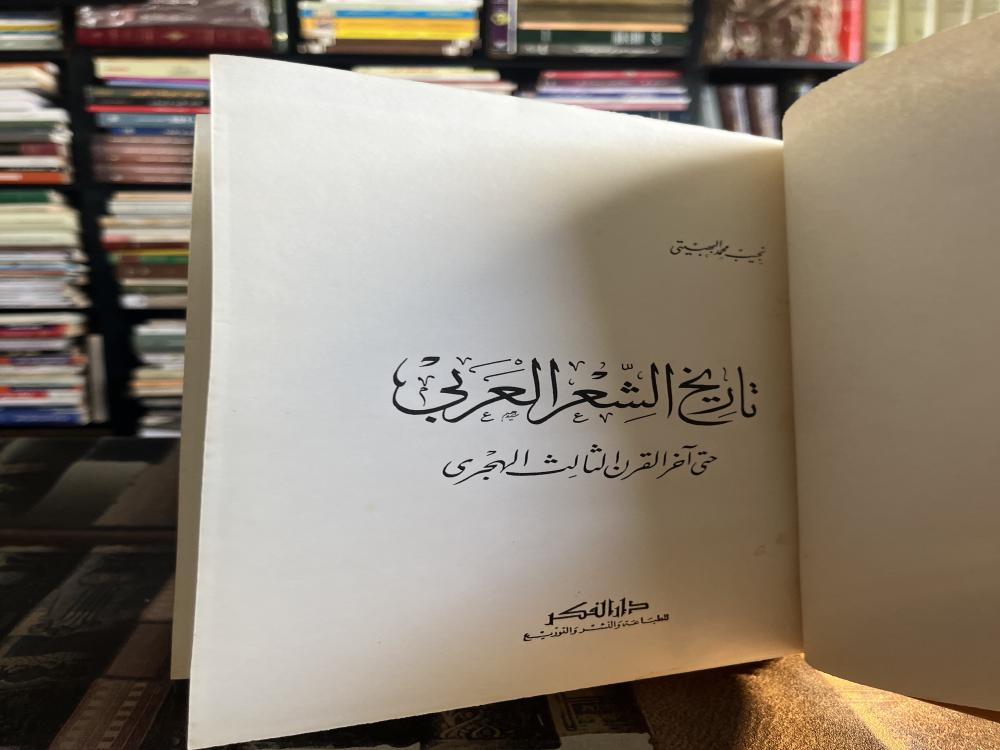 نجيب محمد البهبيتي
تاريخ الشعر العربي
حتى آخر القرن الثالث الهجرى
دار الفكر
للطباعة والنشر والتوزيع